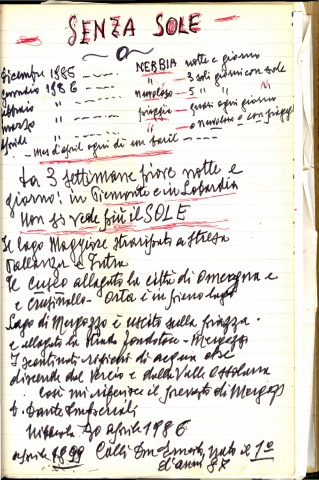 SENZA SOLE
Dicembre 1985 ---- NEBBIA notte e giorno
Gennaio 1986 ---- " — 3 soli giorni con sole
febraio " ---- nuvoloso — 5 " "
marzo " ---- pioggia — quasi ogni giorno
Aprile " ---- " — o nuvoloso o con pioggia
- Mesi d'april ogni dì un baril -
Da 3 settimane piove notte e
giorno! in Piemonte e in Lombardia
Non si vede più il SOLE
Il lago Maggiore straripato a Stresa
Pallanza e Intra
Il Cusio allagato la città di Omegna e
e Crusinallo - Orta è in pieno lago
Lago di Mergozzo è uscito sulla piazza -
e allagato la strada fondotoce - Mergozzo
I continui di acqua che
dal e dalla Valle Ossolana
Così mi riferisce il di Mergozzo
Dante
20 aprile 1986
aprile 1899 Calli nato il 1º
d'anni 87